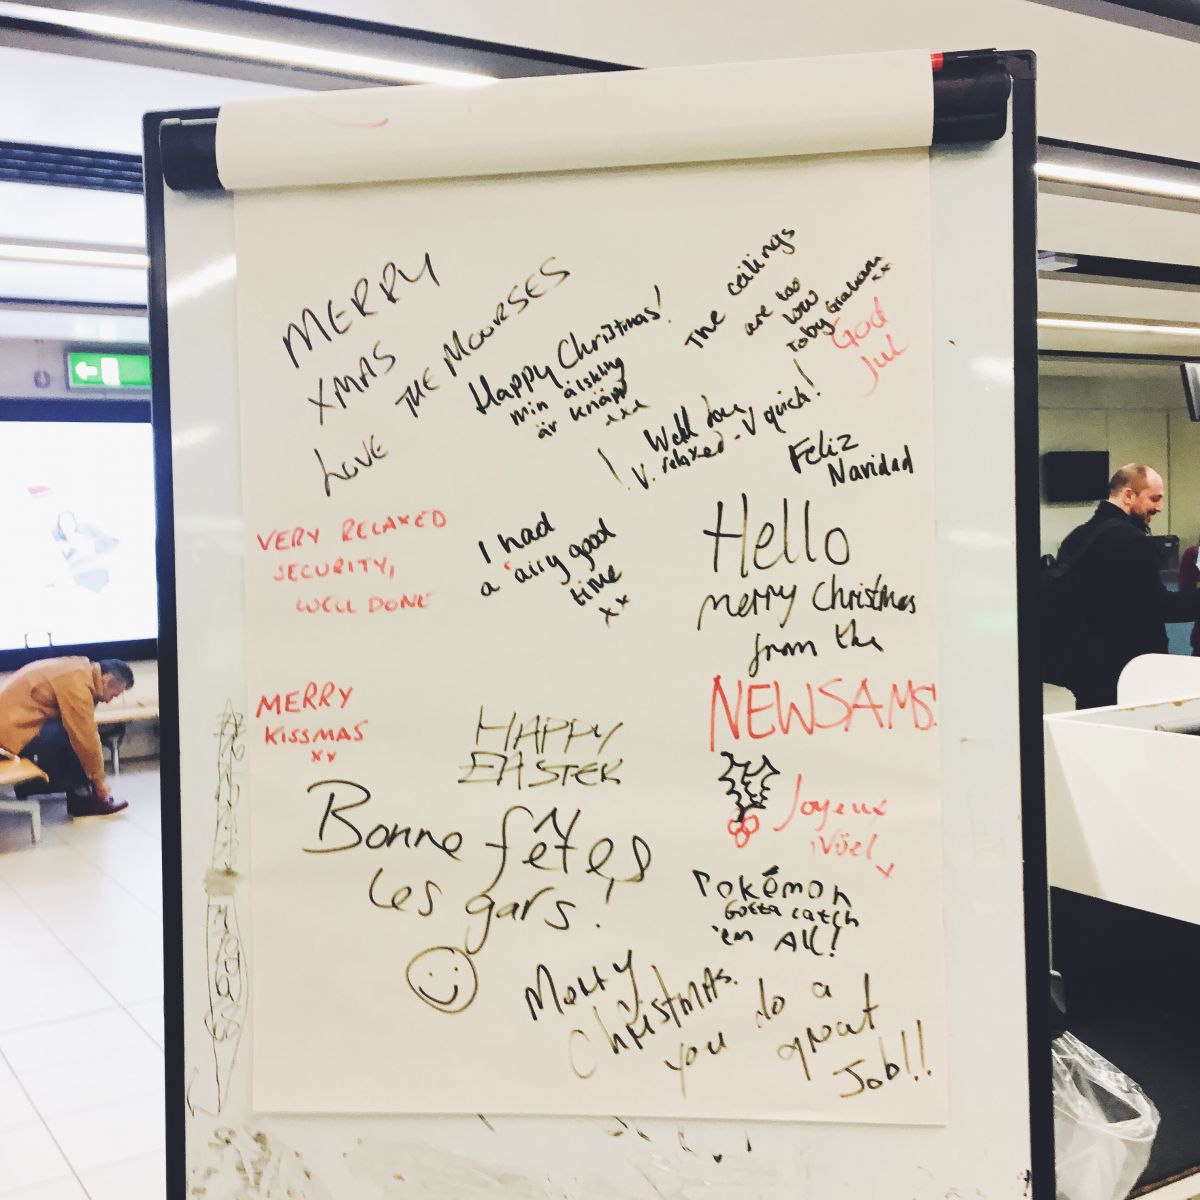 MERRY
XMAS
LOVE THE MOURSES
Happy Christmas!
min älskling
är knäpp
xxx
The ceilings
are too
low
Toby Graham
xx
God
Jul
! Well done !
V. relaxed - V quick!
Feliz
Navidad
VERY RELAXED
SECURITY,
WELL DONE
I had
a 'airy good
time
xx
Hello
merry Christmas
from the
NEWSAMS!
MERRY
KISSMAS
xx
HAPPY
EASTER
Joyeux
Nöel
Bonne fêtes
les gars!
Pokémon
Gotta catch
'em All!
Merry
Christmas.
you do a
great
Job!!